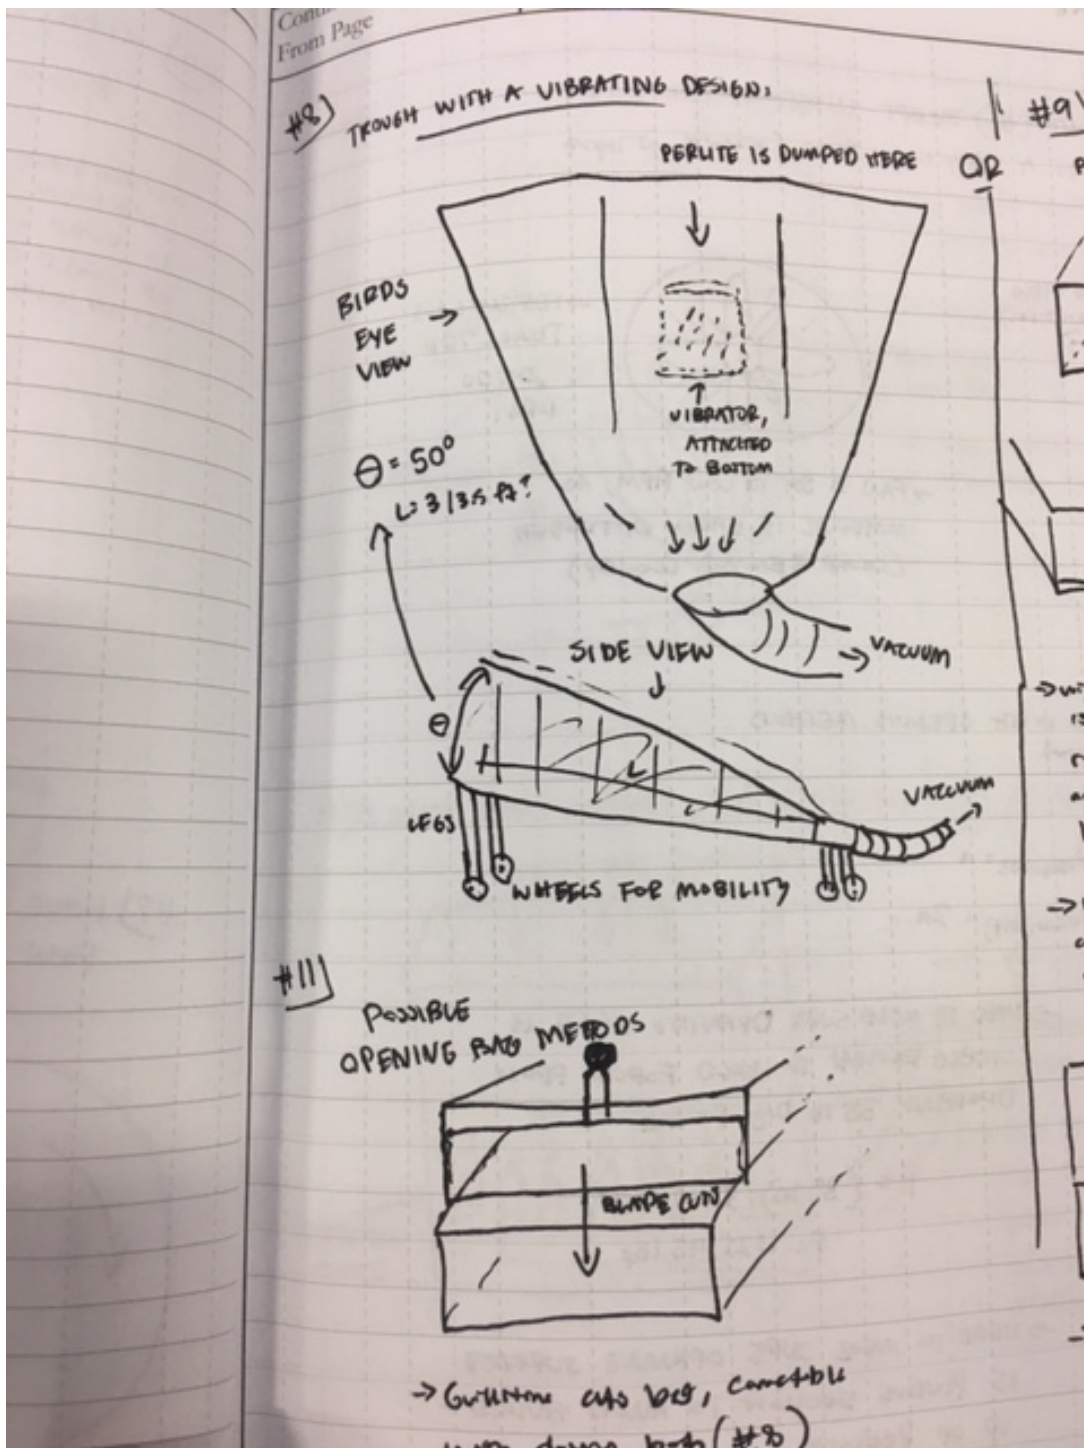 From Page
#8)
TROUGH WITH A VIBRATING DESIGN.
PERLITE IS DUMPED HERE
OR
#9
BIRDS
EYE
VIEW
VIBRATOR,
ATTACHED
TO BOTTOM
θ = 50°
L: 3/3.5 ft?
VACUUM
SIDE VIEW
θ
VACUUM
LEGS
WHEELS FOR MOBILITY
#11
POSSIBLE
OPENING BAG METODS
BLADE CUTS
→ Guillotine cuts bag,
(#8)